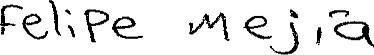 Felipe Mejía